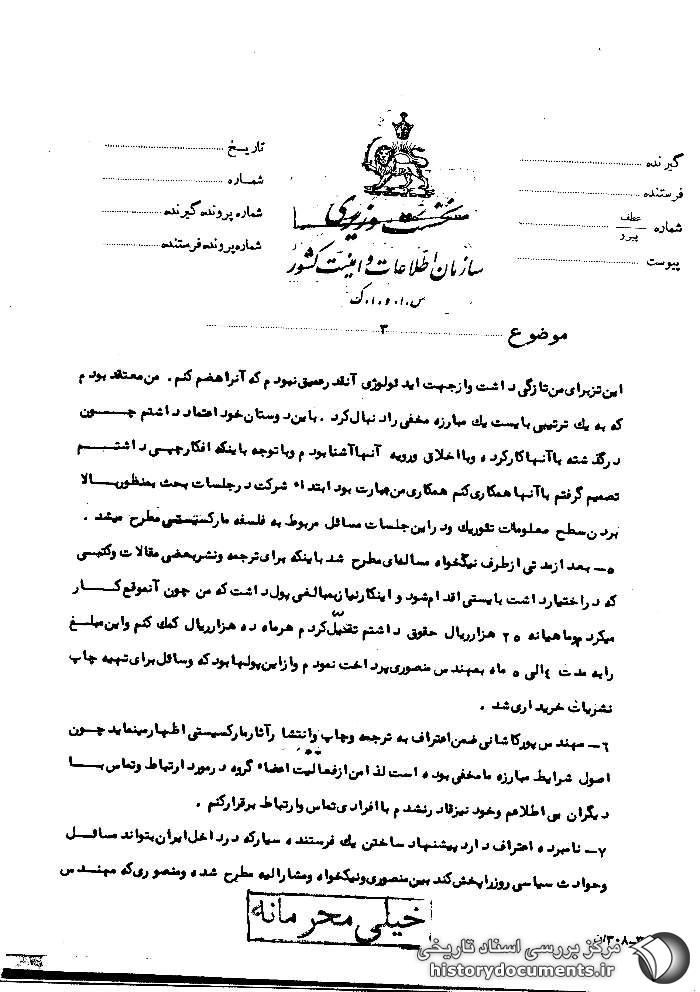 گیرنده
فرستنده
شماره عطف پیرو
پیوست
تاریخ
شماره
شماره پرونده گیرنده
شماره پرونده فرستنده
نخست وزیری
سازمان اطلاعات و امنیت کشور
س.ا.و.ا.ک
موضوع ۳
این تز برای من تازگی داشت و از جهت ایدئولوژی آنقدر عمیق نبودم که آنرا هضم کنم. من معتقد بودم
که به یک ترتیبی بایست یک مبارزه مخفی را دنبال کرد. باین دوستان خود اعتماد داشتم چون
در گذشته با آنها کار کرده و با اخلاق و رویه آنها آشنا بودم و با توجه باینکه افکار چپی داشتم
تصمیم گرفتم با آنها همکاری کنم همکاری من عبارت بود ابتداء شرکت در جلسات بحث بمنظور بالا
بردن سطح معلومات تئوریک و در این جلسات مسائل مربوط به فلسفه مارکسیستی مطرح میشد.
۵- بعد از مدتی از طرف نیکخواه مسالهای مطرح شد باینکه برای ترجمه و نشر بعضی مقالات و کتبی
که در اختیار داشت بایستی اقدام شود و اینکار نیاز بمبالغی پول داشت که من چون آنموقع کار
میکردم و ماهیانه ۲۵ هزار ریال حقوق داشتم تقبل کردم هر ماه ده هزار ریال کمک کنم و این مبلغ
را به مدت ٤ الی ۵ ماه بمهندس منصوری پرداخت نمودم و از این پولها بود که وسائل برای تهیه چاپ
نشریات خریداری شد.
٦- مهندس پورکاشانی ضمن اعتراف به ترجمه و چاپ و انتشار آثار مارکسیستی اظهار مینماید چون
اصول شرایط مبارزه ما مخفی بوده است لذا من از فعالیت اعضاء گروه در مورد ارتباط و تماس با
دیگران بی اطلاعم و خود نیز قادر نشدم با افرادی تماس و ارتباط برقرار کنم.
۷- نامبرده اعتراف دارد پیشنهاد ساختن یک فرستنده سیار که در داخل ایران بتواند مسائل
و حوادث سیاسی روز را پخش کند بین منصوری و نیکخواه و مشارالیه مطرح شده و منصوری که مهندس
خیلی محرمانه
مرکز بررسی اسناد تاریخی
historydocuments.ir